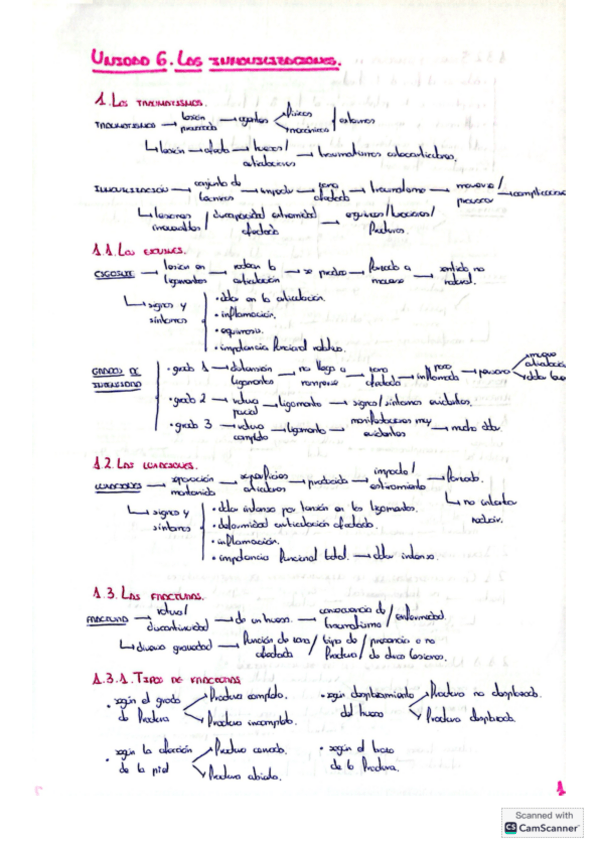 UNIDAD 6. LAS INMOVILIZACIONES.
1. LOS TRAUMATISMOS.
TRAUMATISMO → lesión provocada → agentes físicos / mecánicos / externos
↳ lesión → afecta → huesos / articulaciones → traumatismos osteoarticulares.
INMOVILIZACIÓN → conjunto de técnicas → impedir → zona afectada → traumatismo → moverse / provocar → complicaciones
↳ lesiones irreversibles / discapacidad extremidad afectada → esguinces / luxaciones / fracturas.
1.1. LOS ESGUINCES.
ESGUINCE → lesión en ligamentos → rodean la articulación → se produce → forzado a moverse → sentido no natural.
↳ signos y síntomas
• dolor en la articulación.
• inflamación.
• equimosis.
• impotencia funcional relativa.
GRADOS DE INTENSIDAD
• grado 1 → distensión ligamentos → no llega a romperse → zona afectada → zona inflamada → persona → mueve articulación
→ dolor leve
• grado 2 → rotura parcial → ligamento → signos/síntomas evidentes.
• grado 3 → rotura completa → ligamento → manifestaciones muy evidentes → mucho dolor.
1.2. LAS LUXACIONES.
LUXACIONES → separación mantenida → superficies articulares → producida → impacto / estiramiento → forzado.
↳ signos y síntomas
↳ no intentar reducir.
• dolor intenso por tensión en los ligamentos.
• deformidad articulación afectada.
• inflamación.
• impotencia funcional total. → dolor intenso.
1.3. LAS FRACTURAS.
FRACTURA → rotura / discontinuidad → de un hueso. → consecuencia de traumatismo / enfermedad.
↳ diversa gravedad → función de zona afectada / tipo de fractura / presencia o no de otras lesiones.
1.3.1. TIPOS DE FRACTURAS
• según el grado de fractura → fractura completa.
→ fractura incompleta.
• según desplazamiento del hueso → fractura no desplazada.
→ fractura desplazada.
• según la afección de la piel → fractura cerrada.
→ fractura abierta.
• según el trazo de la fractura.
1
Scanned with
CS CamScanner